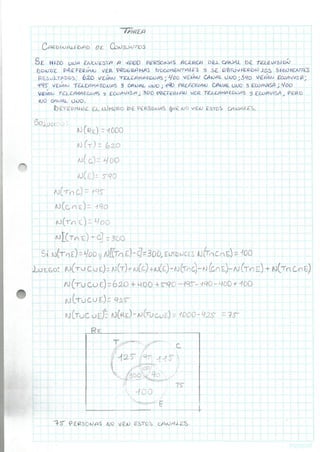 TAREA
CARDINALIDAD DE CONJUNTOS
SE HIZO UNA ENCUESTA A 1000 PERSONAS ACERCA DEL CANAL DE TELEVISIÓN
DONDE PREFERÍAN VER PROGRAMAS DOCUMENTALES Y SE OBTUVIERON LOS SIGUIENTES
RESULTADOS: 620 VEÍAN TELEAMAZONAS; 400 VEÍAN CANAL UNO; 590 VEÍAN ECUAVISA;
195 VEÍAN TELEAMAZONAS Y CANAL UNO; 190 PREFERÍAN CANAL UNO Y ECUAVISA; 400
VEÍAN TELEAMAZONAS Y ECUAVISA; 300 PREFERÍAN VER TELEAMAZONAS Y ECUAVISA, PERO
NO CANAL UNO.
DETERMINE EL NÚMERO DE PERSONAS QUE NO VEN ESTOS CANALES.
N(RE) = 1000
N(T) = 620
N(C) = 400
N(E) = 590
N(T∩C) = 195
N(C∩E) = 190
N(T∩E) = 400
N[(T∩E)-C] = 300
Si N(T∩E)=400 y N[(T∩E)-C]=300, ENTONCES: N(T∩C∩E) = 100
LUEGO: N(T∪C∪E) = N(T)+N(C)+N(E)-N(T∩C)-N(C∩E)-N(T∩E)+N(T∩C∩E)
N(T∪C∪E) = 620 + 400 + 590 -195 -190 -400 + 100
N(T∪C∪E) = 925
N(T∪C∪E)ᶜ = N(RE)-N(T∪C∪E) = 1000-925 = 75
RE
T C
125 95 115
90
75
E
75 PERSONAS NO VEN ESTOS CANALES